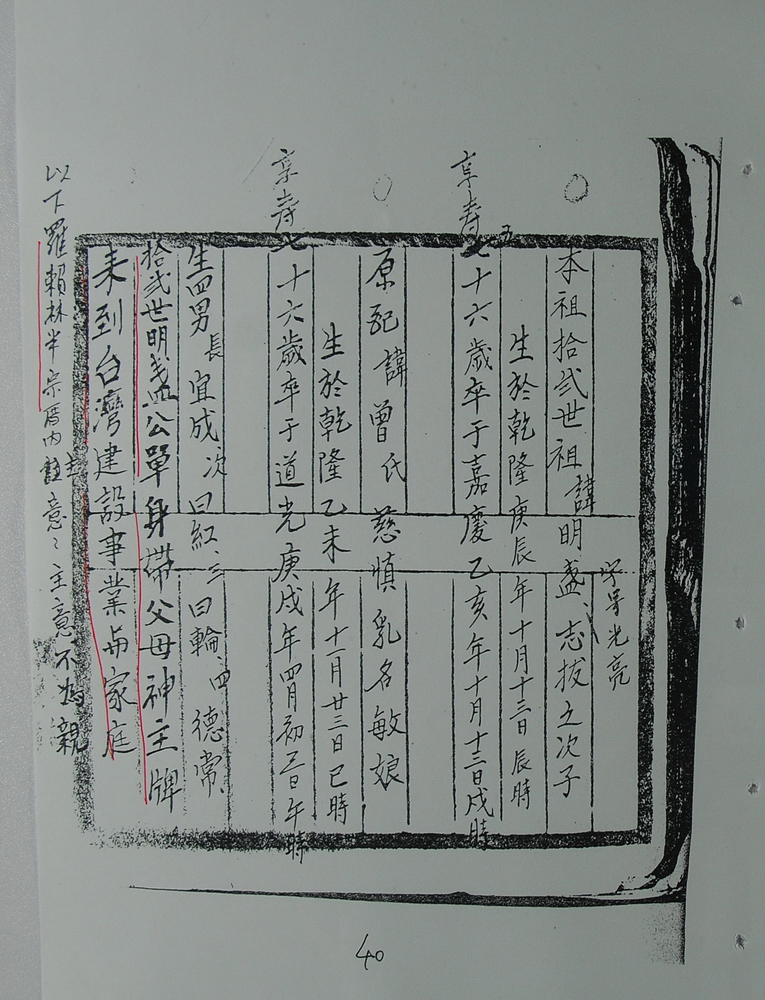 字號光亮
本祖拾弍世祖諱明盞、志拔之次子
生於乾隆庚辰年十月十三日辰時
享寿五十六歲卒于嘉慶乙亥年十月十三日戌時
原配諱曾氏慈慎乳名敏娘
生於乾隆乙未年十一月廿三日巳時
享寿七十六歲卒于道光庚戌年四月初三日午時
生四男長宜成次曰紅、三曰輪、四德常、
拾弍世明盞公單身帶父母神主牌
来到台灣建設事業与家庭
以下羅賴林半宗厝内註意々主意不為親
40